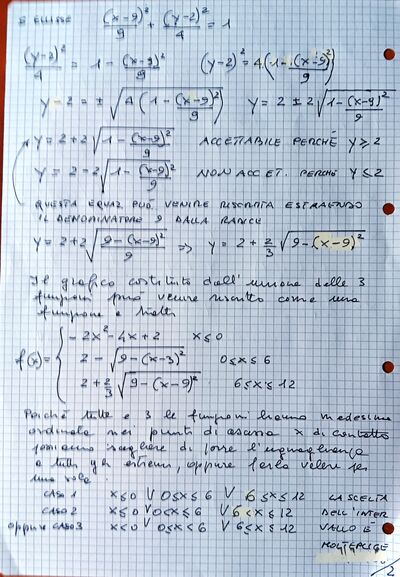 3 ELLISSE (x-9)²/9 + (y-2)²/4 = 1
(y-2)²/4 = 1 - (x-9)²/9 (y-2)² = 4(1 - (x-9)²/9)
y - 2 = ± √(4(1 - (x-9)²/9)) y = 2 ± 2√(1 - (x-9)²/9)
y = 2 + 2√(1 - (x-9)²/9) ACCETTABILE PERCHÉ y ≥ 2
y = 2 - 2√(1 - (x-9)²/9) NON ACCET. PERCHÉ y ≤ 2
QUESTA EQUAZ. PUÒ VENIRE RISCRITTA ESTRAENDO
IL DENOMINATORE 9 DALLA RADICE
y = 2 + 2√((9 - (x-9)²)/9) => y = 2 + 2/3 √(9 - (x-9)²)
Il grafico costituito dall'unione delle 3
funzioni può venire riscritto come una
funzione a tratti
f(x) = { - 2x² - 4x + 2 x ≤ 0
2 - √(9 - (x-3)²) 0 ≤ x ≤ 6
2 + 2/3 √(9 - (x-9)²) 6 ≤ x ≤ 12
Poiché tutte e 3 le funzioni hanno medesima
ordinata nei punti di ascissa x di contatto
possiamo scegliere di porre l'uguaglianza
a tutti gli estremi, oppure farla valere per
una sola
CASO 1 x ≤ 0 V 0 ≤ x ≤ 6 V 6 ≤ x ≤ 12 LA SCELTA
CASO 2 x ≤ 0 V 0 < x ≤ 6 V 6 < x ≤ 12 DELL'INTER
oppure CASO 3 x ≤ 0 V 0 < x < 6 V 6 ≤ x ≤ 12 VALLO È
MOLTEPLICE
2